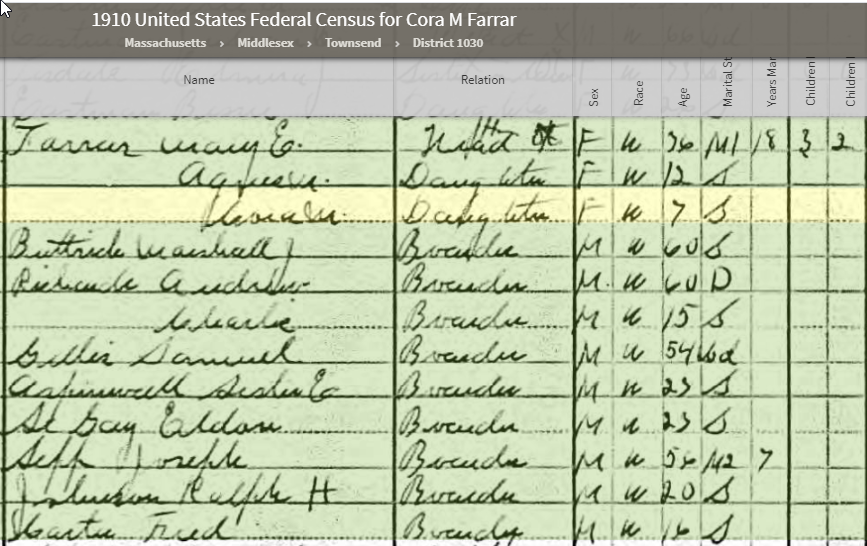 1910 United States Federal Census for Cora M Farrar
Massachusetts › Middlesex › Townsend › District 1030
Name Relation Sex Race Age Marital St Years Mar Children Children
Farrar Mary E. Head F W 36 M1 18 3 2
Agnes M. Daughter F W 12 S
Cora M. Daughter F W 7 S
Buttrick Marshall J Boarder M W 60 S
Richards Andrew Boarder M W 60 D
Charlie Boarder M W 15 S
Gillis Samuel Boarder M W 54 Wd
Aspinwall E Boarder M W 23 S
Boarder M W 23 S
Joseph Boarder M W M2 7
Johnson Ralph H Boarder M W 20 S
Fred Boarder M W 16 S